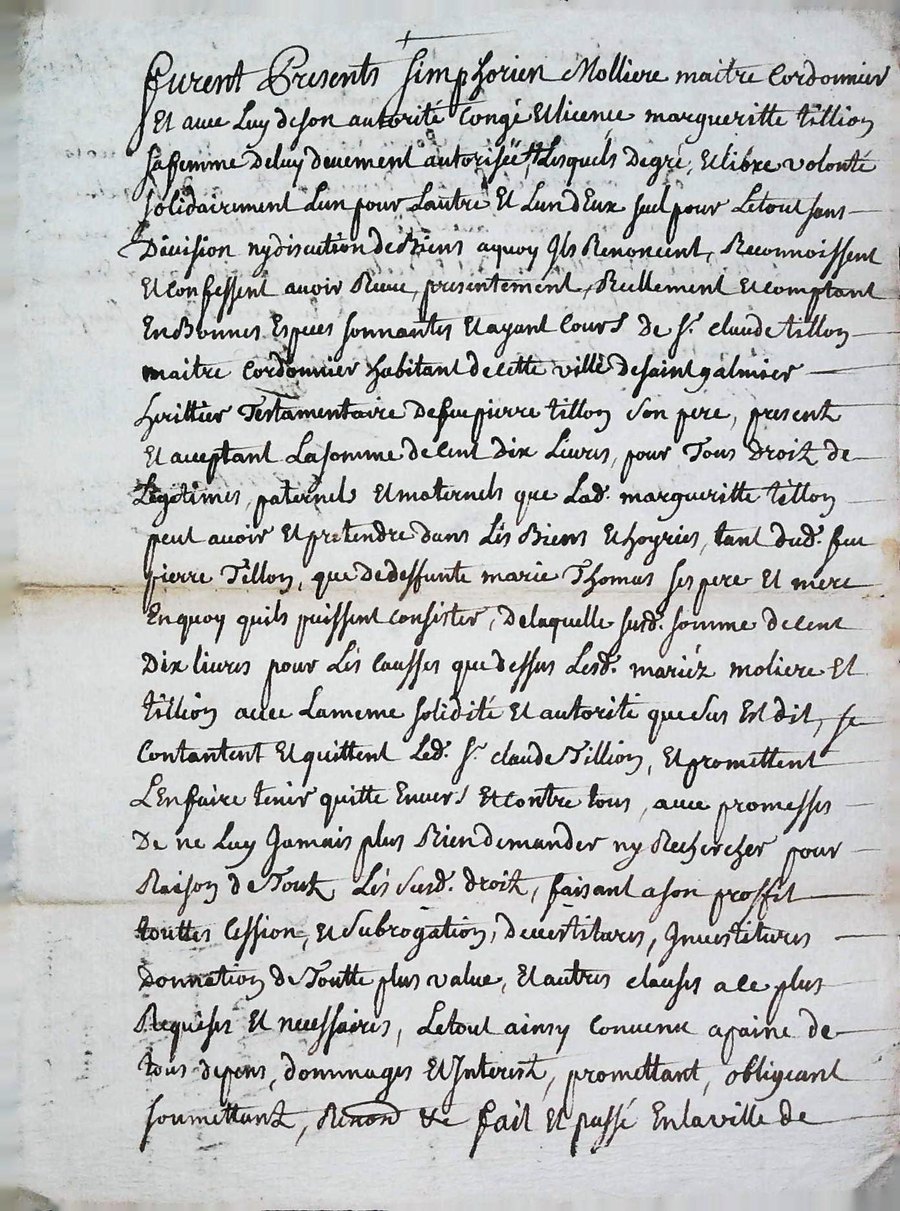 furent Presents Simphorien Molliere maitre Cordonnier
Et avec Luy de son autorité Congé Et licence margueritte tillion
sa femme de luy deuement autorisée, Lesquels de gré, Et libre volonté
solidairement Lun pour Lautre Et Lun dEux seul pour Le tout sans
Division ny discution de Biens a quoy Ils Renoncent, Reconnoissent
Et Confessent avoir Receu, presentement, Reellement Et Comptant
En Bonnes Especes sonnantes Et ayant Cours de Sr. claude tillon
maitre Cordonnier habitant de cette ville de saint galmier
herittier Testamentaire de feu pierre tillon son pere, present
Et acceptant La somme de Cent Dix Livres, pour Tous Droit de
Legitimes, paternels Et maternels que Lad. margueritte tillon
peut avoir Et pretendre dans Les Biens Et hoyries, tant dud. feu
pierre Tillon, que de deffunte marie Thomas ses pere Et mere
En quoy quils puissent Consister, De laquelle susd. somme de Cent
Dix livres pour Les Causses que dessus Lesd. mariéz moliere Et
tillion avec La meme solidité Et autorité que sus Est dit, se
Contantent Et quittent Led. Sr. claude Tillion, Et promettent
LEn faire tenir quitte Envers Et Contre tous, avec promesses
De ne Luy Jamais plus Rien demander ny Rechercher pour
Raison de Tout Les susd. droit, faisant a son proffit
touttes Cession, Et subrogation, Devestitures, Investitures
Donnation de Toutte plus value, Et autres clauses a ce plus
Requises Et necessaires, Le tout ainsy Convenu a paine de
tous depens, dommages Et Interest, promettant, obligeant
soumettant, Renond &c fait Et passé En la ville de